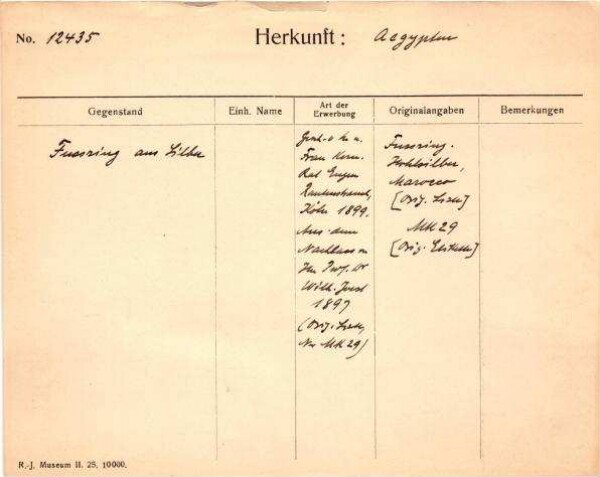 No. 12435 Herkunft: Aegypten
Gegenstand Einh. Name Art der Erwerbung Originalangaben Bemerkungen
Fussring aus Silber
Gesch. d. h. u.
Frau Kom.
Rat Eugen
Rautenstrauch,
Köln 1899.
Aus dem
Nachlass v.
Hn. Prof. Dr
Wilh. Joest
1897
(Orig. Liste,
No MK 29)
Fussring.
Hohlsilber,
Marocco
[Orig. Liste]
MK 29
[Orig. Etikette]
R.-J. Museum II. 25. 10000.